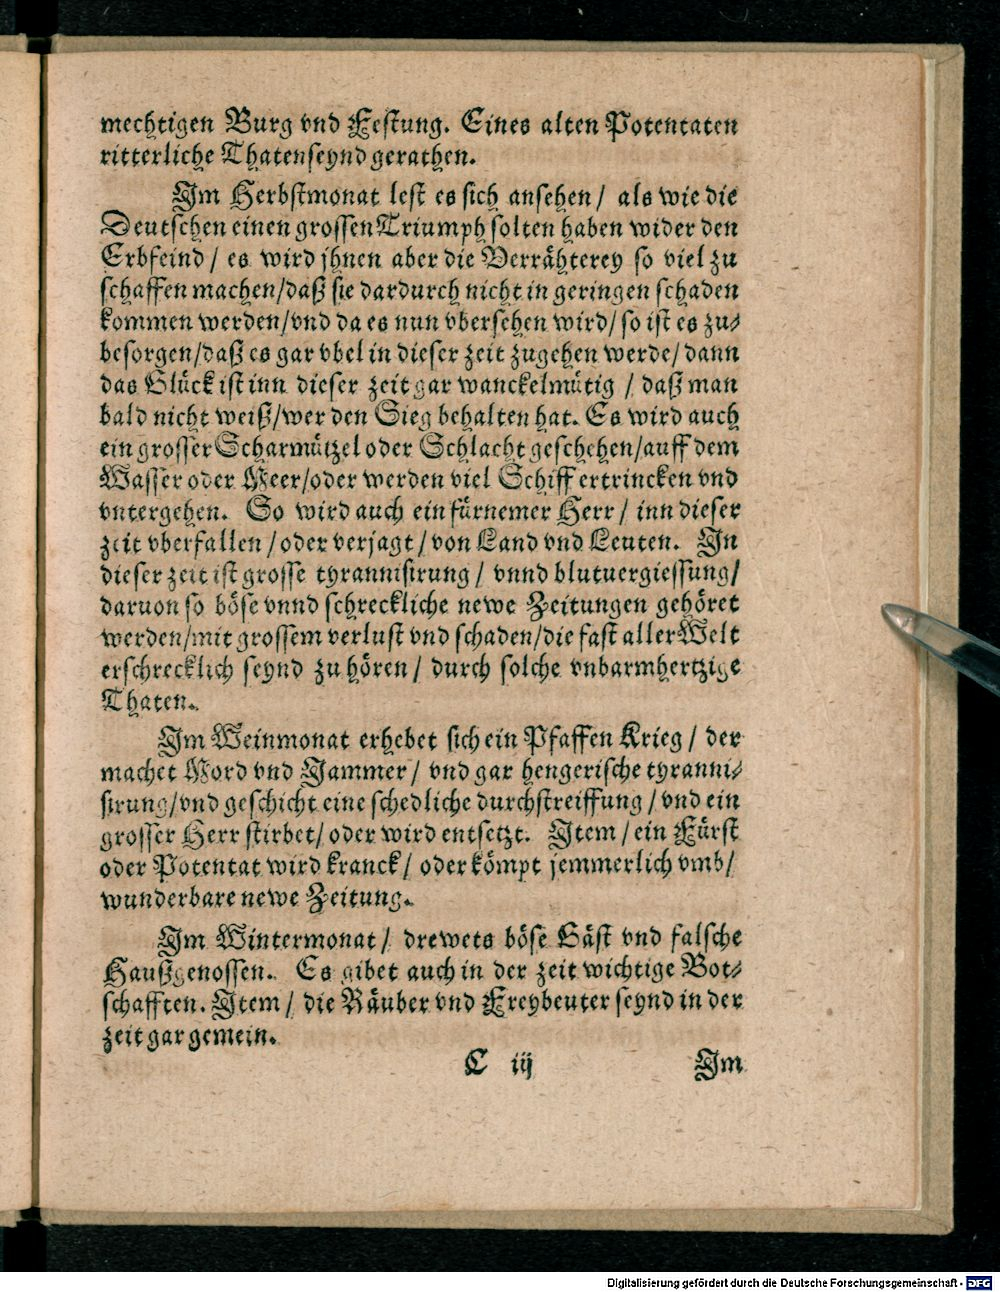 mechtigen Burg vnd Festung. Eines alten Potentaten
ritterliche Thaten seynd gerathen.
Im Herbstmonat lest es sich ansehen / als wie die
Deutschen einen grossen Triumph solten haben wider den
Erbfeind / es wird jhnen aber die Verrähterey so viel zu
schaffen machen / daß sie dardurch nicht in geringen schaden
kommen werden / vnd da es nun vbersehen wird / so ist es zu-
besorgen / daß es gar vbel in dieser zeit zugehen werde / dann
das Glück ist inn dieser zeit gar wanckelmütig / daß man
bald nicht weiß / wer den Sieg behalten hat. Es wird auch
ein grosser Scharmützel oder Schlacht geschehen / auff dem
Wasser oder Meer / oder werden viel Schiff ertrincken vnd
vntergehen. So wird auch ein fürnemer Herr / inn dieser
zeit vberfallen / oder verjagt / von Land vnd Leuten. In
dieser zeit ist grosse tyrannisirung / vnnd blutuergiessung /
daruon so böse vnnd schreckliche newe Zeitungen gehöret
werden / mit grossem verlust vnd schaden / die fast aller Welt
erschrecklich seynd zu hören / durch solche vnbarmhertzige
Thaten.
Im Weinmonat erhebet sich ein Pfaffen Krieg / der
machet Mord vnd Jammer / vnd gar hengerische tyranni-
sirung / vnd geschicht eine schedliche durchstreiffung / vnd ein
grosser Herr stirbet / oder wird entsetzt. Item / ein Fürst
oder Potentat wird kranck / oder kömpt jemmerlich vmb /
wunderbare newe Zeitung.
Im Wintermonat / drewets böse Gäst vnd falsche
Haußgenossen. Es gibet auch in der zeit wichtige Bot-
schafften. Item / die Räuber vnd Freybeuter seynd in der
zeit gar gemein.
C iij Im
Digitalisierung gefördert durch die Deutsche Forschungsgemeinschaft - DFG